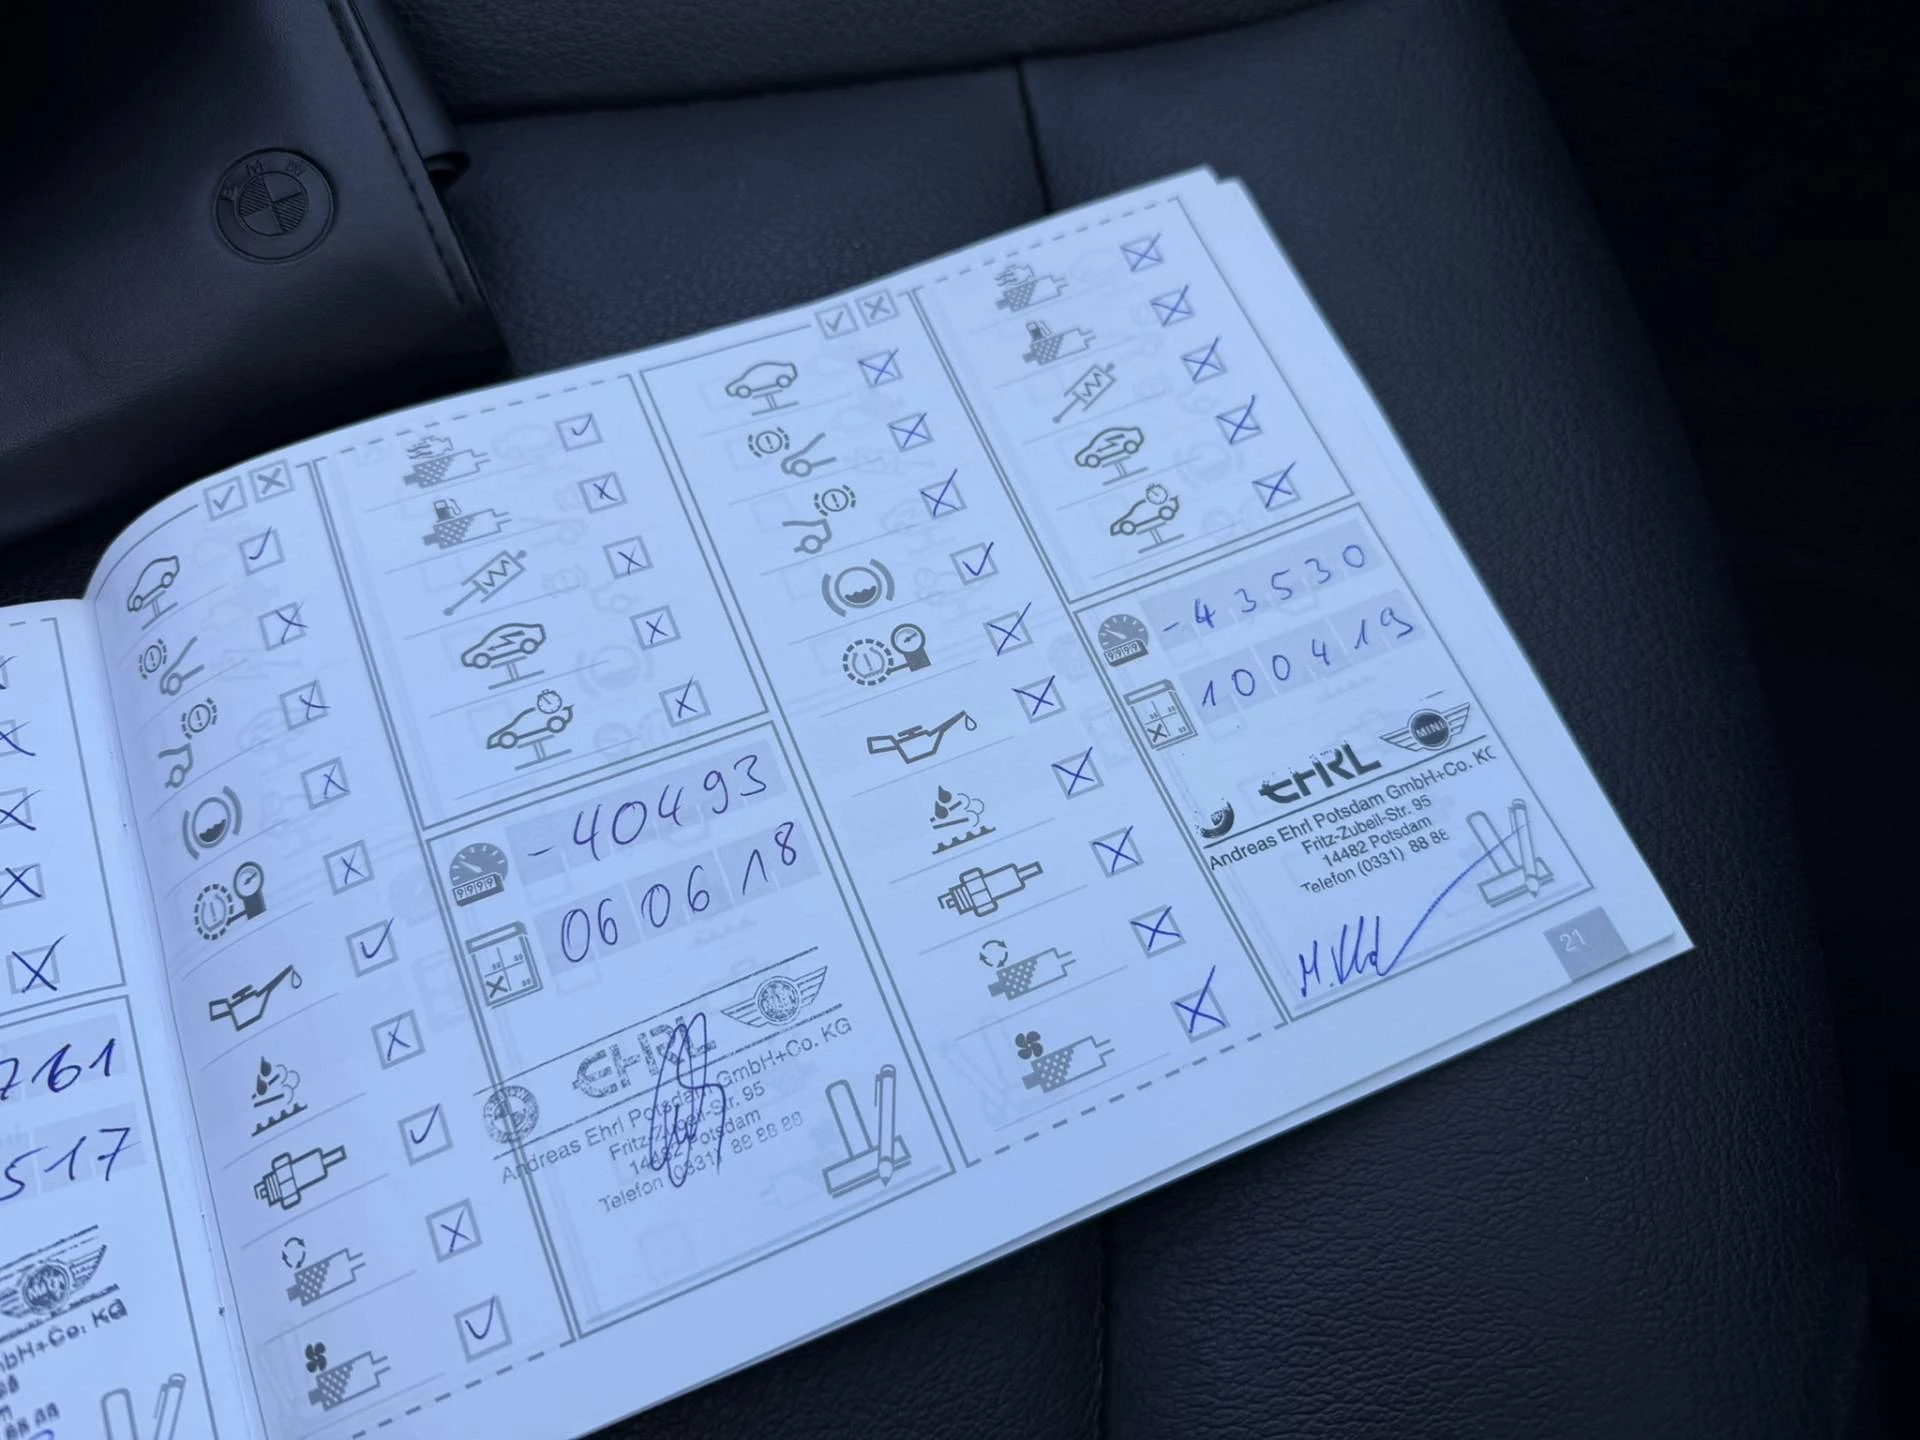 761
517
bH+Co. KG
-40493
060618
EHRL
MINI
Andreas Ehrl Potsdam GmbH+Co. KG
Fritz-Zubeil-Str. 95
14482 Potsdam
Telefon (0331) 88 88 88
-43530
100419
EHRL
MINI
Andreas Ehrl Potsdam GmbH+Co. KG
Fritz-Zubeil-Str. 95
14482 Potsdam
Telefon (0331) 88 88
21
BMW